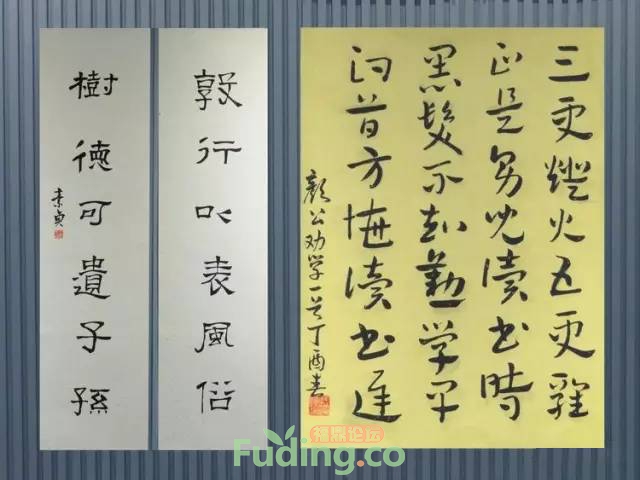 三更燈火五更雞
正是男兒讀书時
黑髮不知勤学早
白首方悔讀书遲
颜公劝学一首丁酉春
敦行以表風俗
樹德可遺子孫
素貞
福鼎论坛
Fuding.co